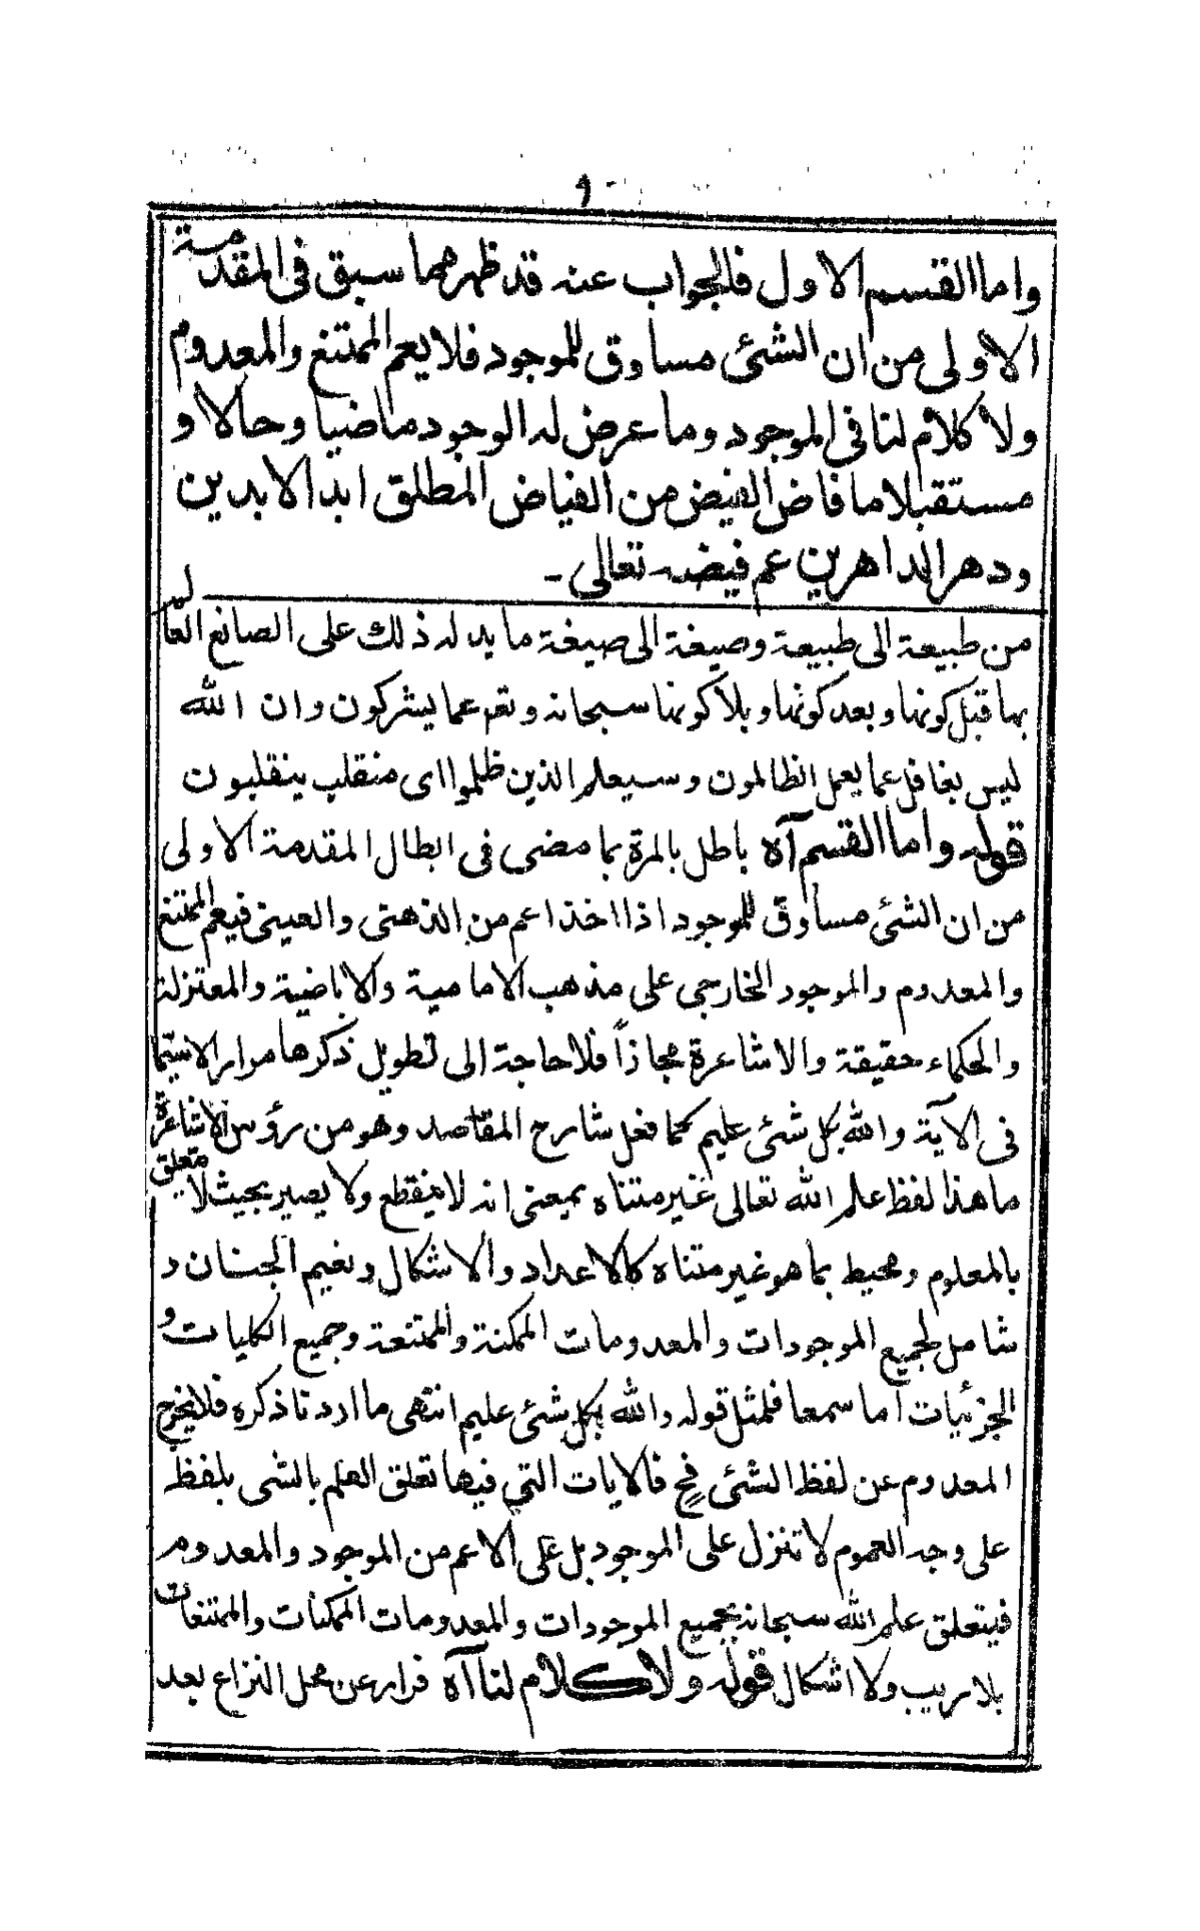 ٩
واما القسم الاول فالجواب عنه قد ظهر مما سبق فى المقدمة
الاولى من ان الشئ مساوق للموجود فلا يعم الممتنع والمعدوم
ولا كلام لنا فى الموجود وما عرض له الوجود ماضيا وحالا و
مستقبلا ما فاض الفيض من الفياض المطلق ابد الابدين
ودهر الداهرين عم فيضه تعالى ـ
من طبيعة الى طبيعة وصيغة الى صيغة ما يدله ذلك على الصانع العالم
بها قبل كونها وبعد كونها وبلا كونها سبحانه وتعم عما يشركون وان الله
ليس بغافل عما يعمل الظالمون وسيعلم الذين ظلموا اى منقلب ينقلبون
قوله واما القسم آه باطل بالمرة بما مضى فى ابطال المقدمة الاولى
من ان الشئ مساوق للموجود اذا اخذ اعم من الذهنى والعينى فيعم الممتنع
والمعدوم والموجود الخارجى على مذهب الامامية والاباضية والمعتزلة
والحكماء حقيقة والاشاعرة مجازاً فلا حاجة الى تطويل ذكرها مرارا لاسيّما
فى الآية والله بكل شئ عليم كما فعل شارح المقاصد وهو من رؤس الاشاعرة
ما هذا لفظ علم الله تعالى غير متناه بمعنى انه لا ينقطع ولا يصير بحيث لا يتعلق
بالمعلوم ومحيط بما هو غير متناه كالاعداد والاشكال ونعيم الجنان و
شامل لجميع الموجودات والمعدومات الممكنة والممتنعة وجميع الكليات و
الجزئيات اما سمعا فلمثل قوله والله بكل شئ عليم انتهى ما اردنا ذكره فلا يخرج
المعدوم عن لفظ الشئ فح فالايات التى فيها تعلق العلم بالشى بلفظ
على وجه العموم لا تنزل على الموجود بل على الاعم من الموجود والمعدوم
فيتعلق علم الله سبحانه بجميع الموجودات والمعدومات الممكنات والممتنعات
بلا ريب ولا اشكال قوله ولا كلام لنا آه فرار عن محل النزاع بعد